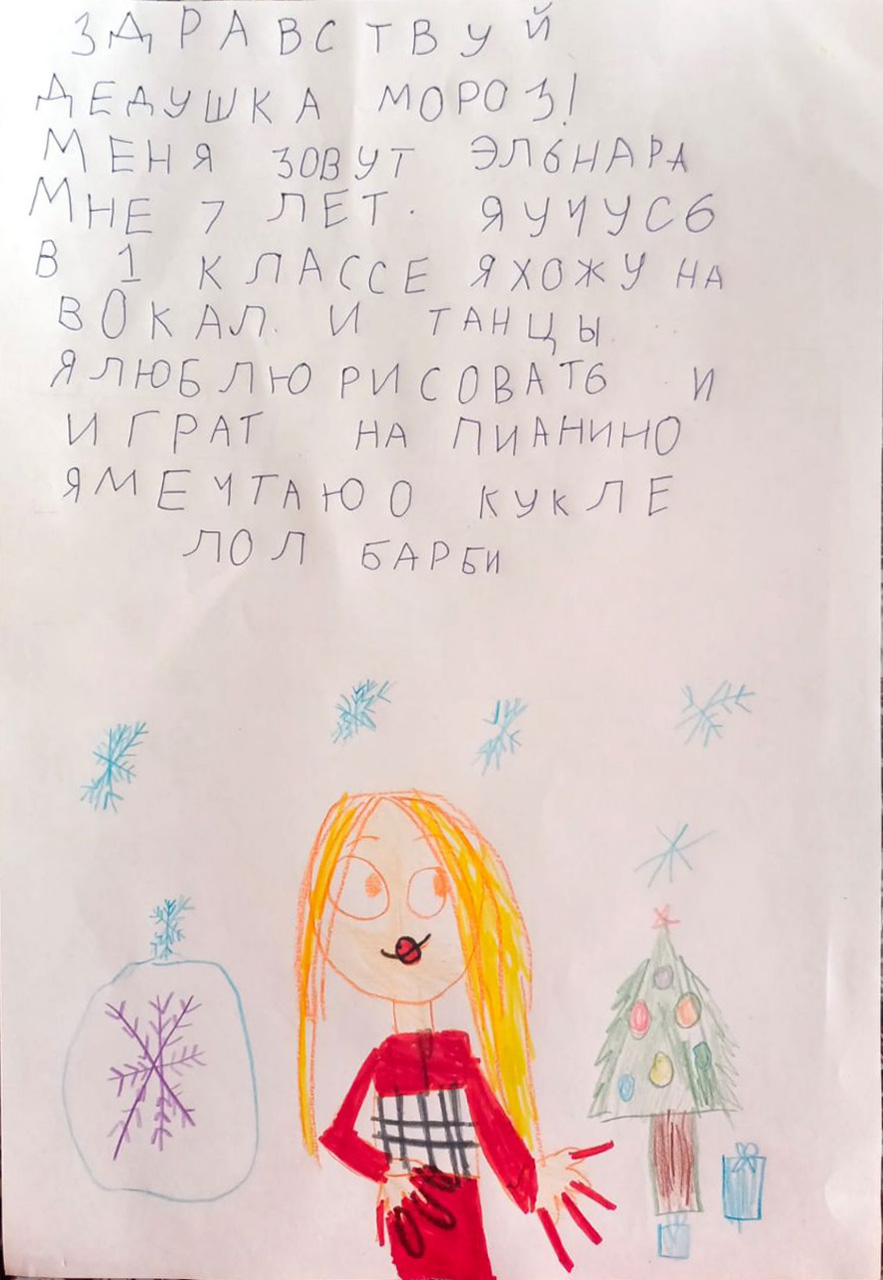 ЗДРАВСТВУЙ
ДЕДУШКА МОРОЗ!
МЕНЯ ЗОВУТ ЭЛЬНАРА
МНЕ 7 ЛЕТ. Я УЧУСЬ
В 1 КЛАССЕ Я ХОЖУ НА
ВОКАЛ И ТАНЦЫ
Я ЛЮБЛЮ РИСОВАТЬ И
ИГРАТ НА ПИАНИНО
Я МЕЧТАЮ О КУКЛЕ
ЛОЛ БАРБИ